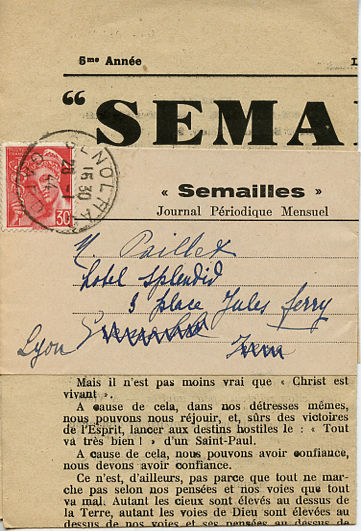 5me Année
“SEMA
GRENOBLE
16 30
44
30
« Semailles »
Journal Périodique Mensuel
M. Paillet
hotel Splendid
3 place Jules ferry
Lyon
Mais il n'est pas moins vrai que « Christ est
vivant ».
A cause de cela, dans nos détresses mêmes,
nous pouvons nous réjouir, et, sûrs des victoires
de l'Esprit, lancer aux destins hostiles le : « Tout
va très bien ! » d'un Saint-Paul.
A cause de cela, nous pouvons avoir confiance,
nous devons avoir confiance.
Ce n'est, d'ailleurs, pas parce que tout ne mar-
che pas selon nos pensées et nos voies que tout
va mal. Autant les cieux sont élevés au dessus de
la Terre, autant les voies de Dieu sont élevées au
dessus de nos voies et ses pensées au dessus de